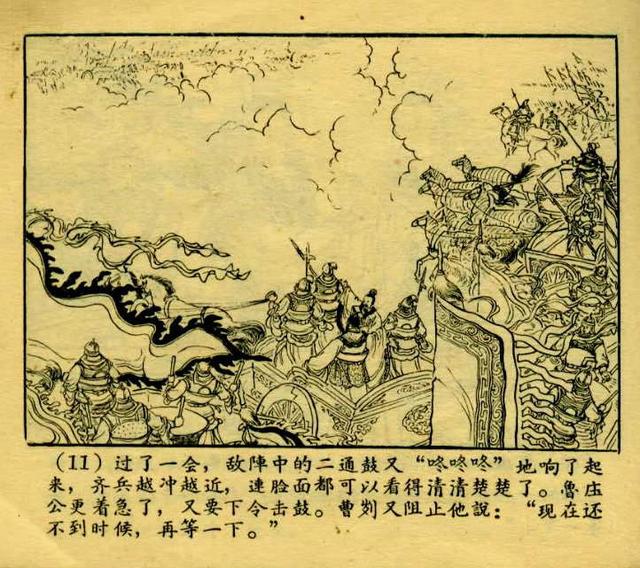 (11) 过了一会，敌陣中的二通鼓又“咚咚咚”地响了起
来，齐兵越冲越近，連脸面都可以看得清清楚楚了。魯庄
公更着急了，又要下令击鼓。曹刿又阻止他說：“现在还
不到时候，再等一下。”